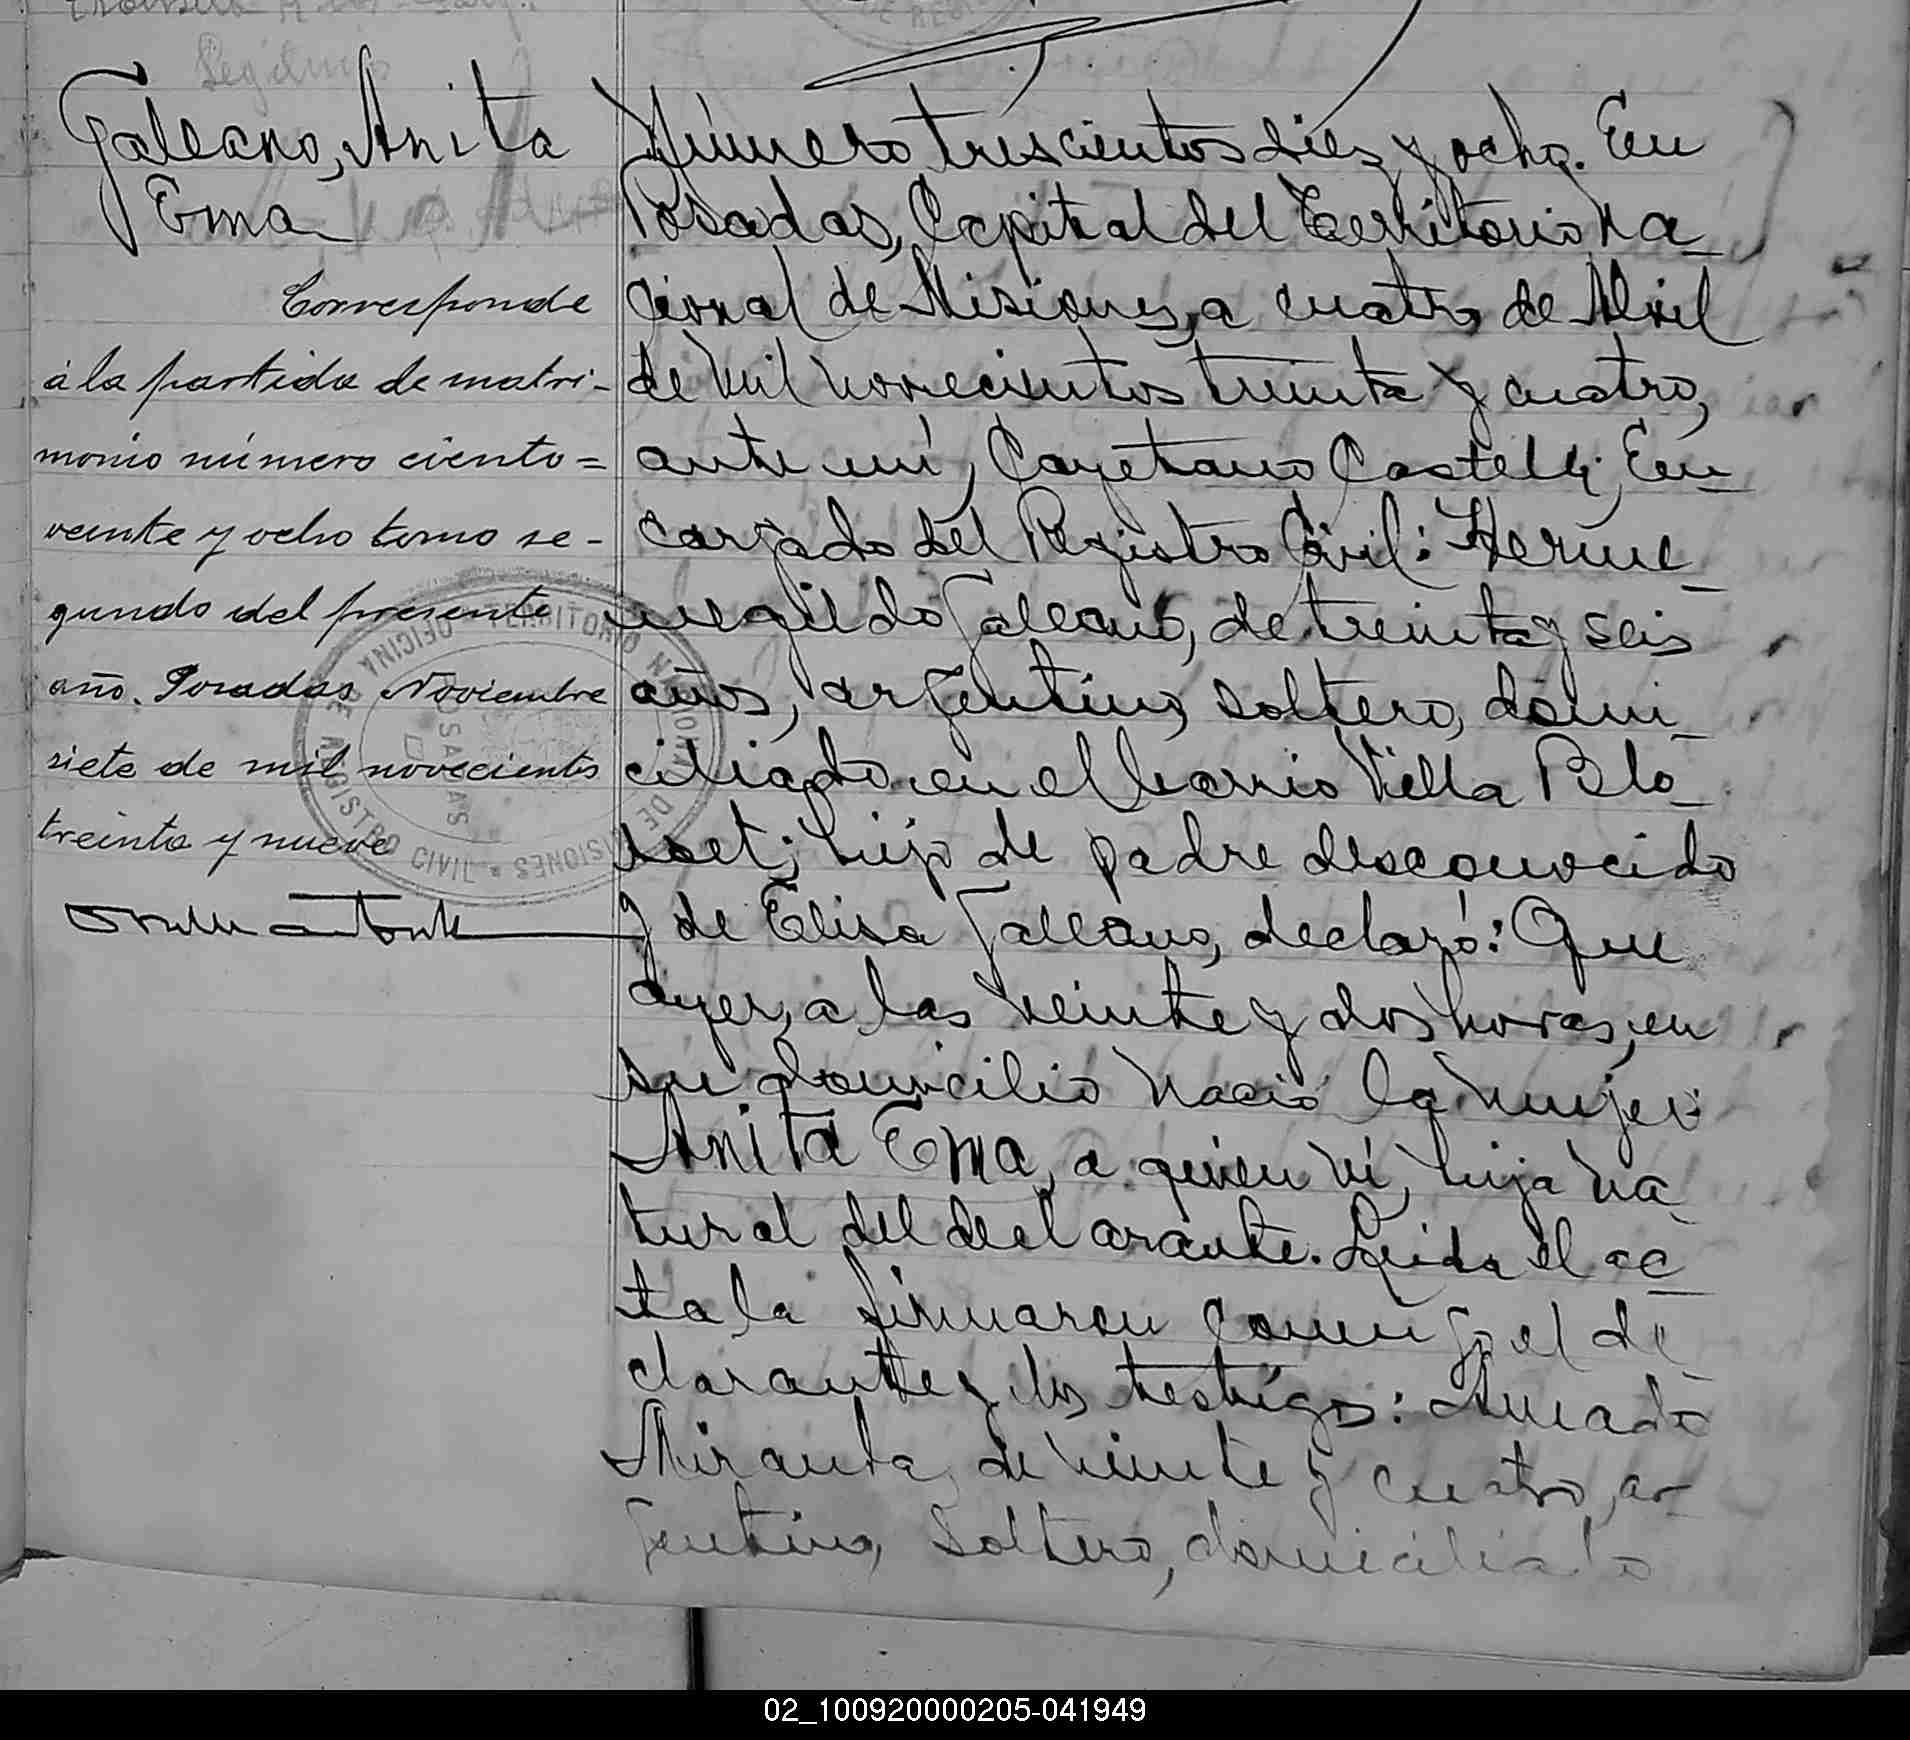 Legítimo
Galeano, Anita
Ema
Corresponde
á la partida de matri-
monio número ciento=
veinte y ocho tomo se-
gundo del presente
año. Posadas Noviembre
siete de mil novecientos
treinta y nueve
TERRITORIO NACIONAL DE MISIONES
OFICINA DE REGISTRO CIVIL
POSADAS
Número trescientos diez y ocho. En
Posadas, Capital del Territorio Na-
cional de Misiones, a cuatro de Abril
de mil novecientos treinta y cuatro,
ante mí, Cayetano Castelli, En-
cargado del Registro Civil: Herme-
negildo Galeano, de treinta y seis
años, argentino, soltero, domi-
ciliado en el barrio Villa Blo-
sset; hijo de padre desconocido
y de Elisa Galeano, declaró: Que
ayer, a las veinte y dos horas, en
su domicilio nació la mujer:
Anita Ema, a quien ví, hija na-
tural del declarante. Leida el ac-
ta la firmaron conmigo el de-
clarante y los testigos: Amado
Miranda, de veinte y cuatro, ar-
gentino, soltero, domiciliado
02_100920000205-041949